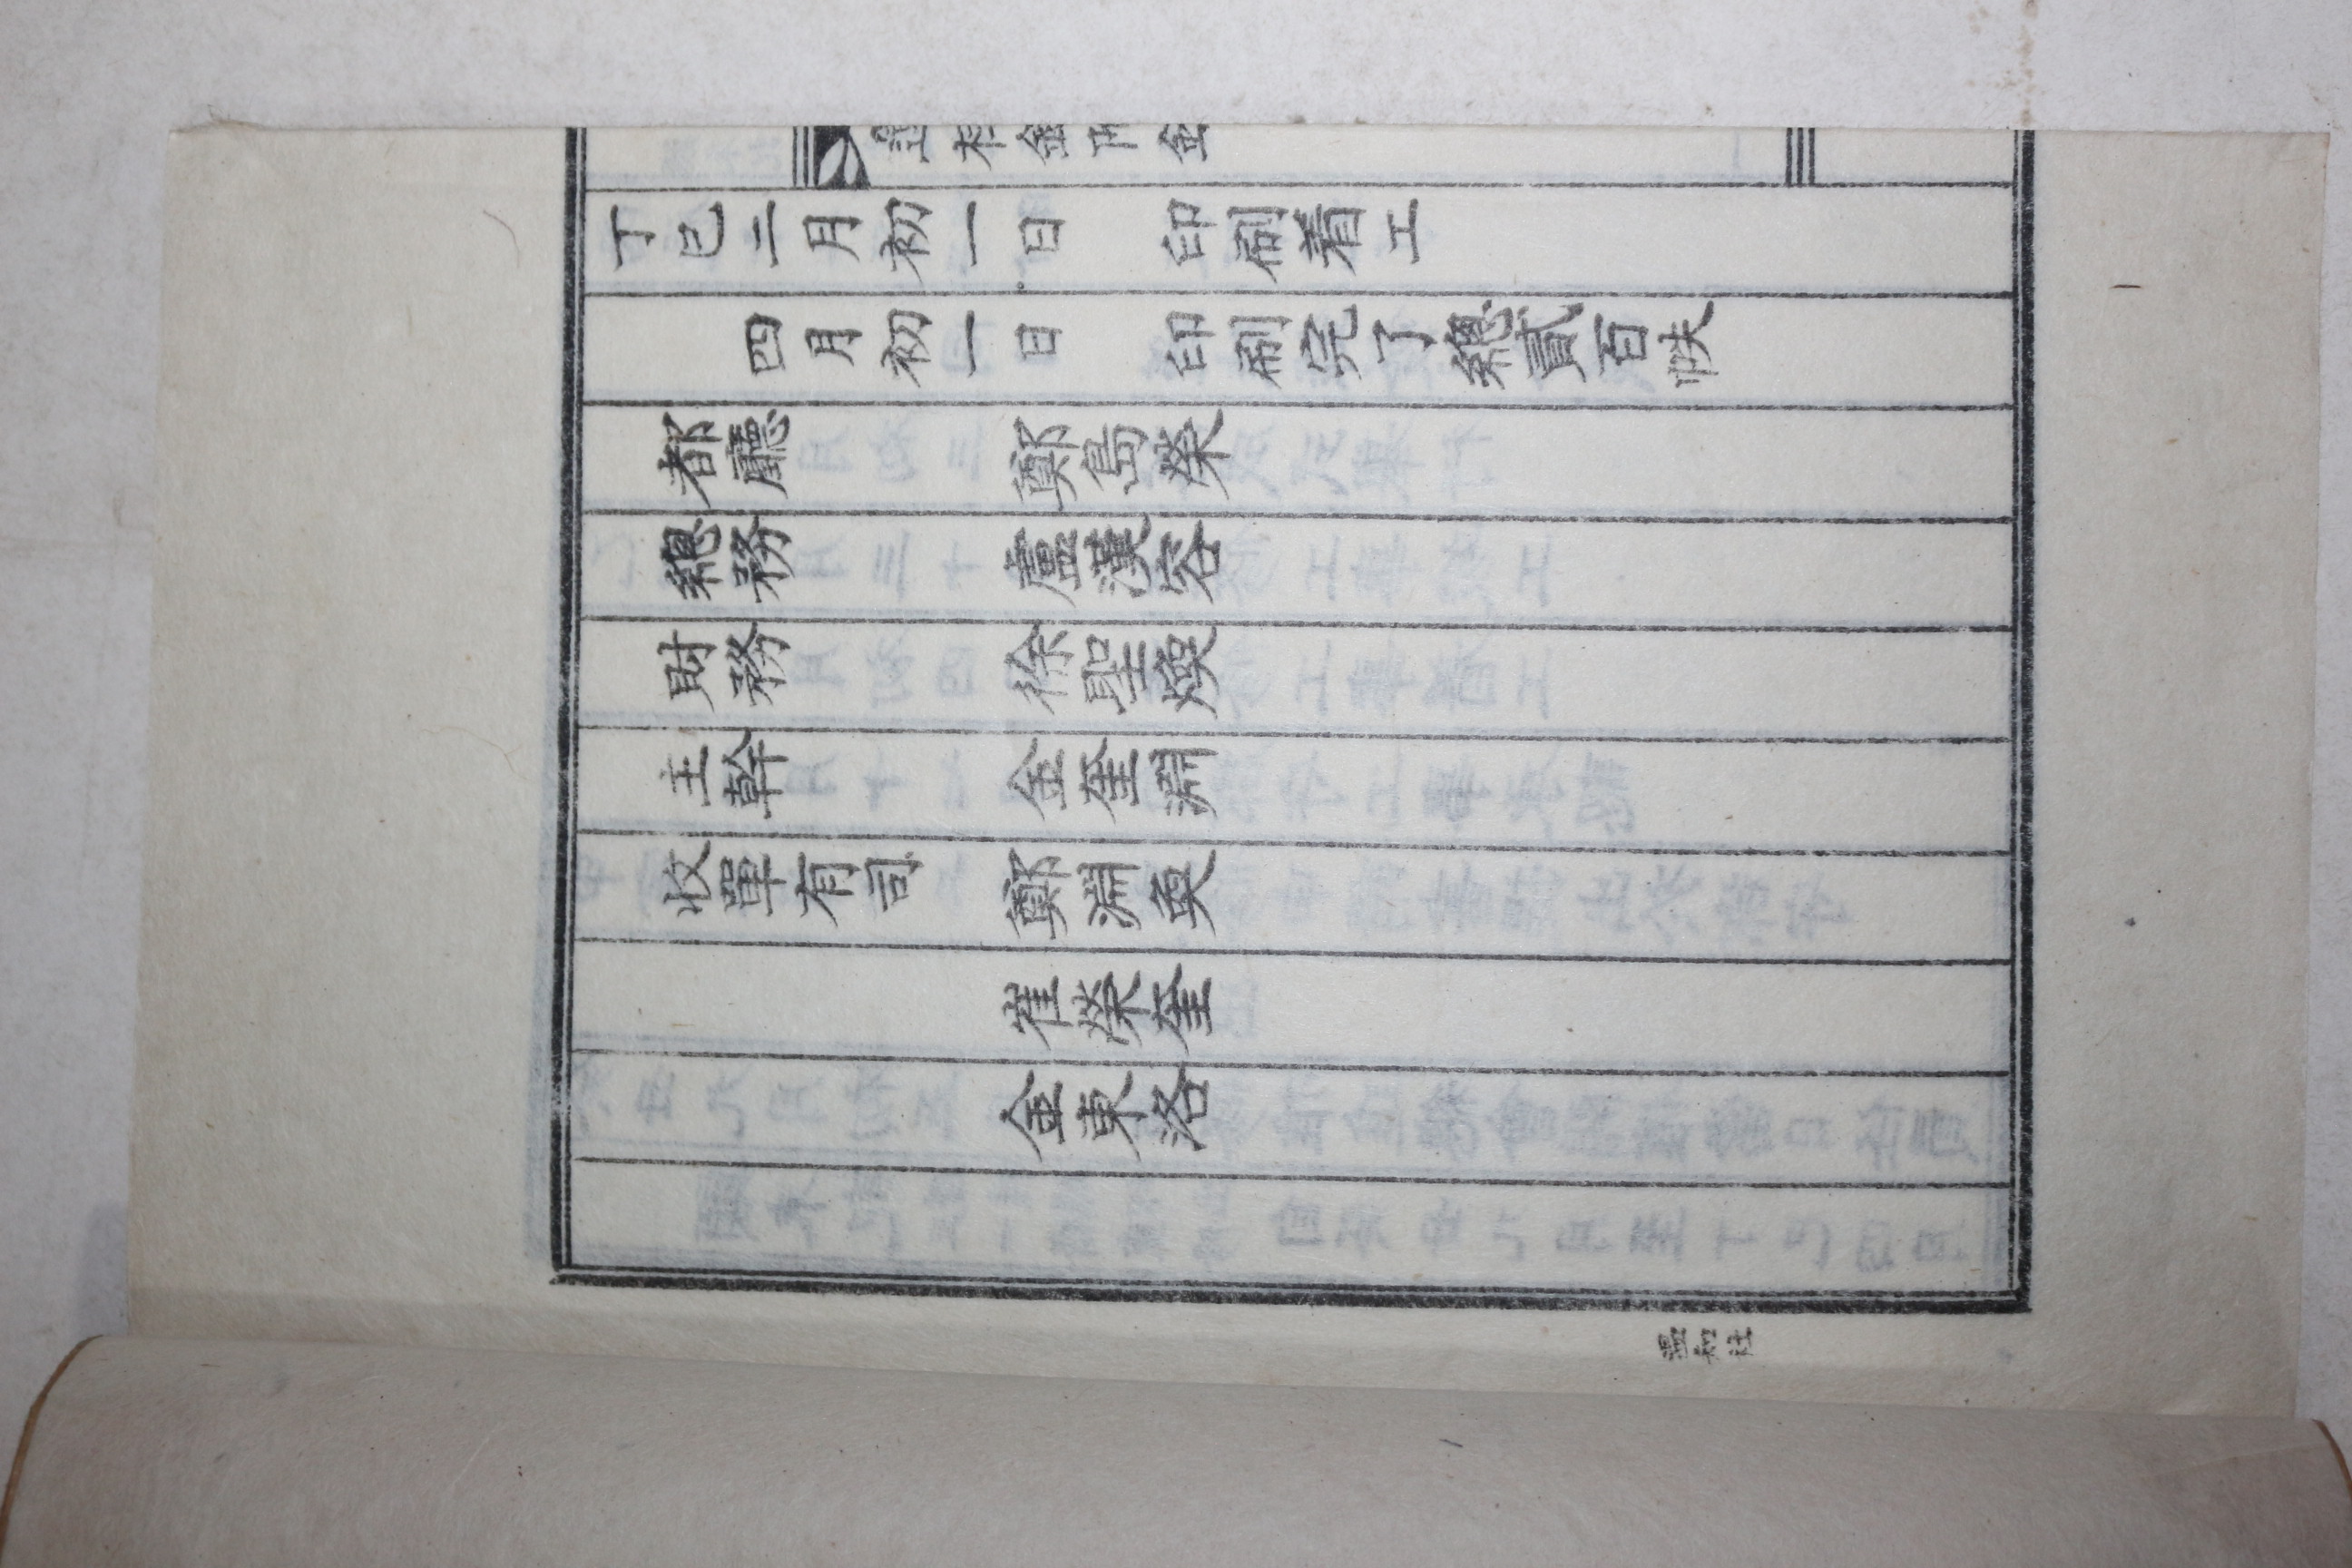 丁巳二月初一日 印刷着工
四月初一日 印刷完了總貳百帙
都廳 鄭島榮
總務 盧漢容
財務 徐聖煥
主幹 金奎淵
收單有司 鄭淵奐
崔榮奎
金東洛
溫知社